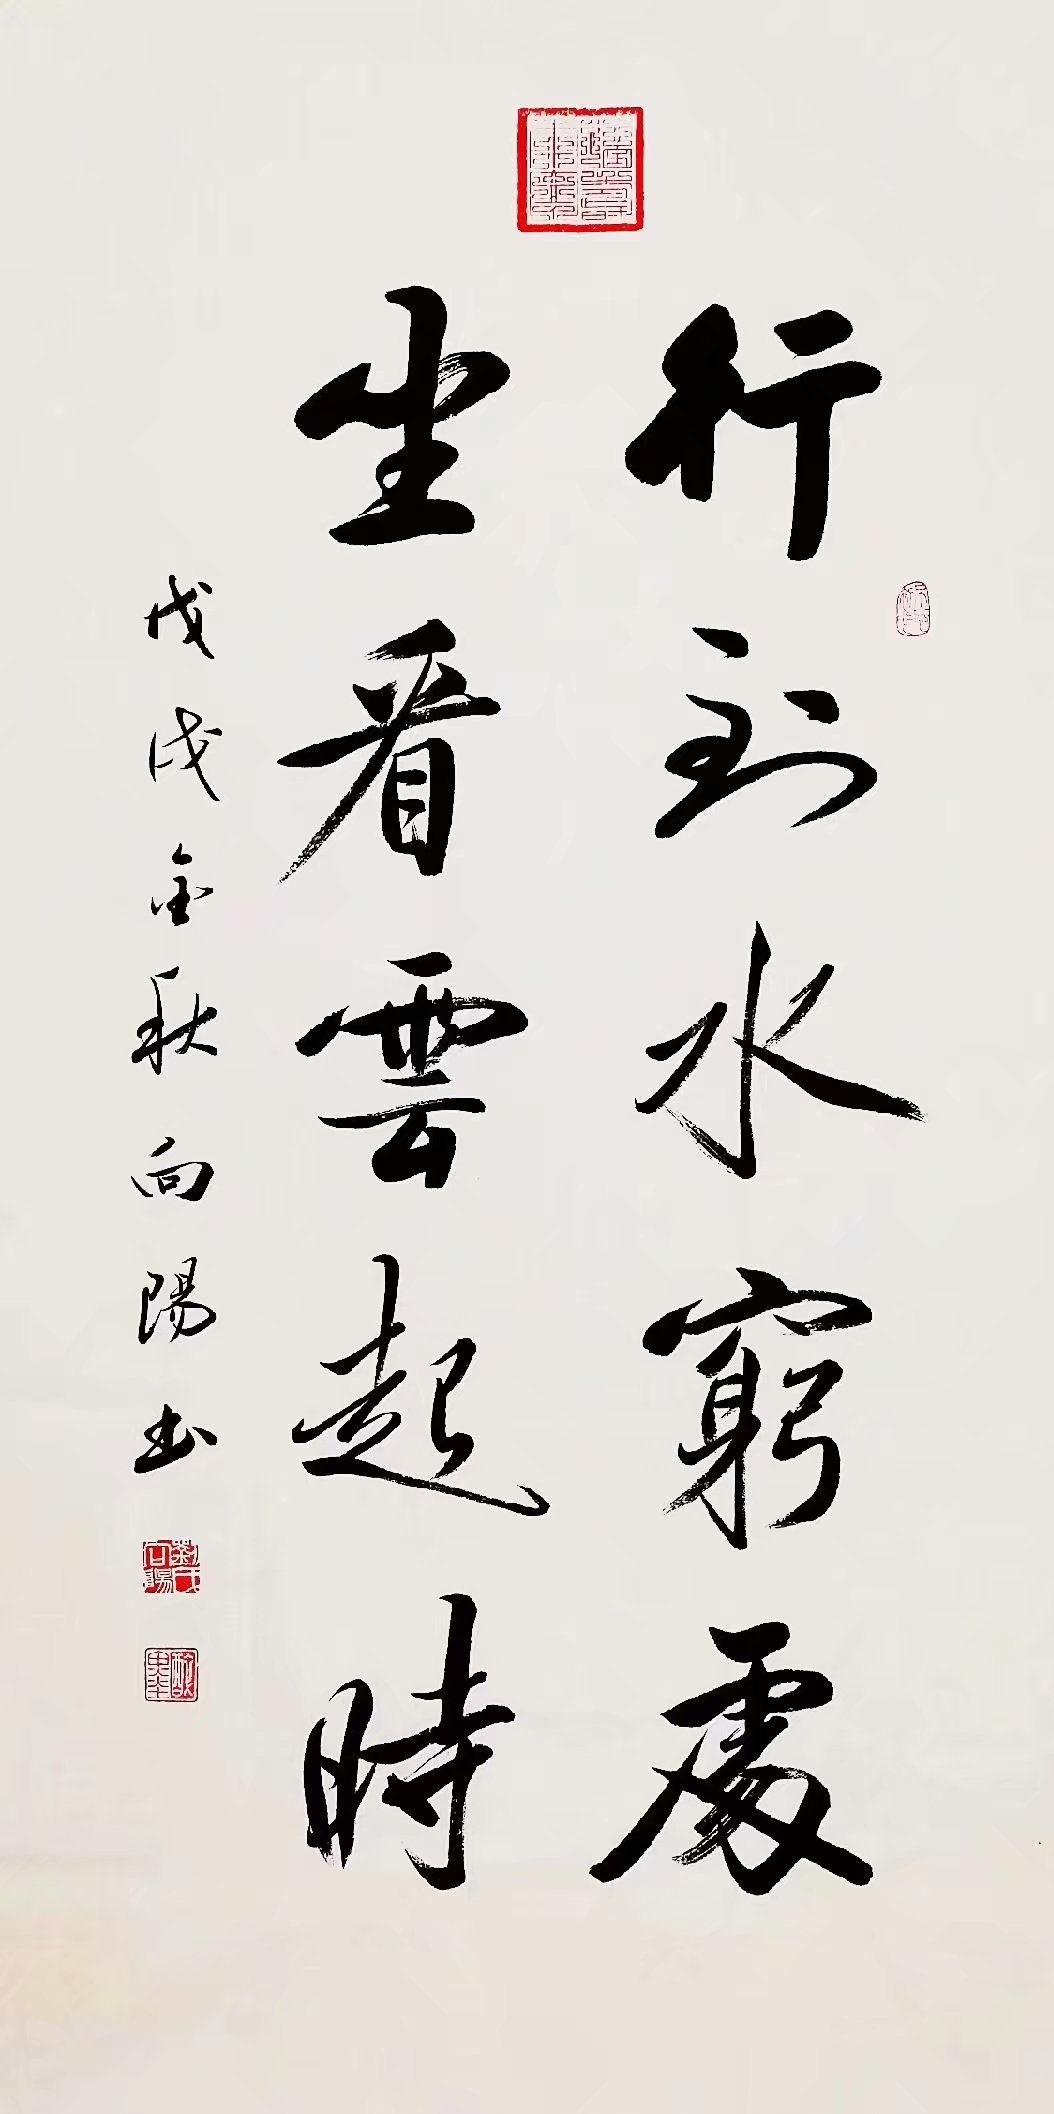 行到水窮處
坐看雲起時
戊戌金秋向陽书